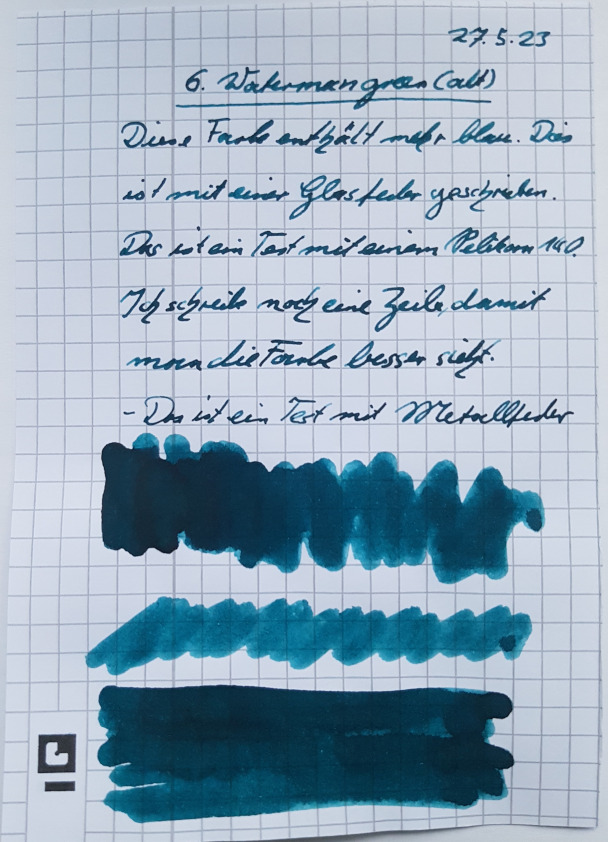 27.5.23
6. Waterman green (alt)
Diese Farbe enthält mehr blau. Dies
ist mit einer Glasfeder geschrieben.
Das ist ein Test mit einem Pelikan 140.
Ich schreibe noch eine Zeile, damit
man die Farbe besser sieht.
- Das ist ein Test mit Metallfeder